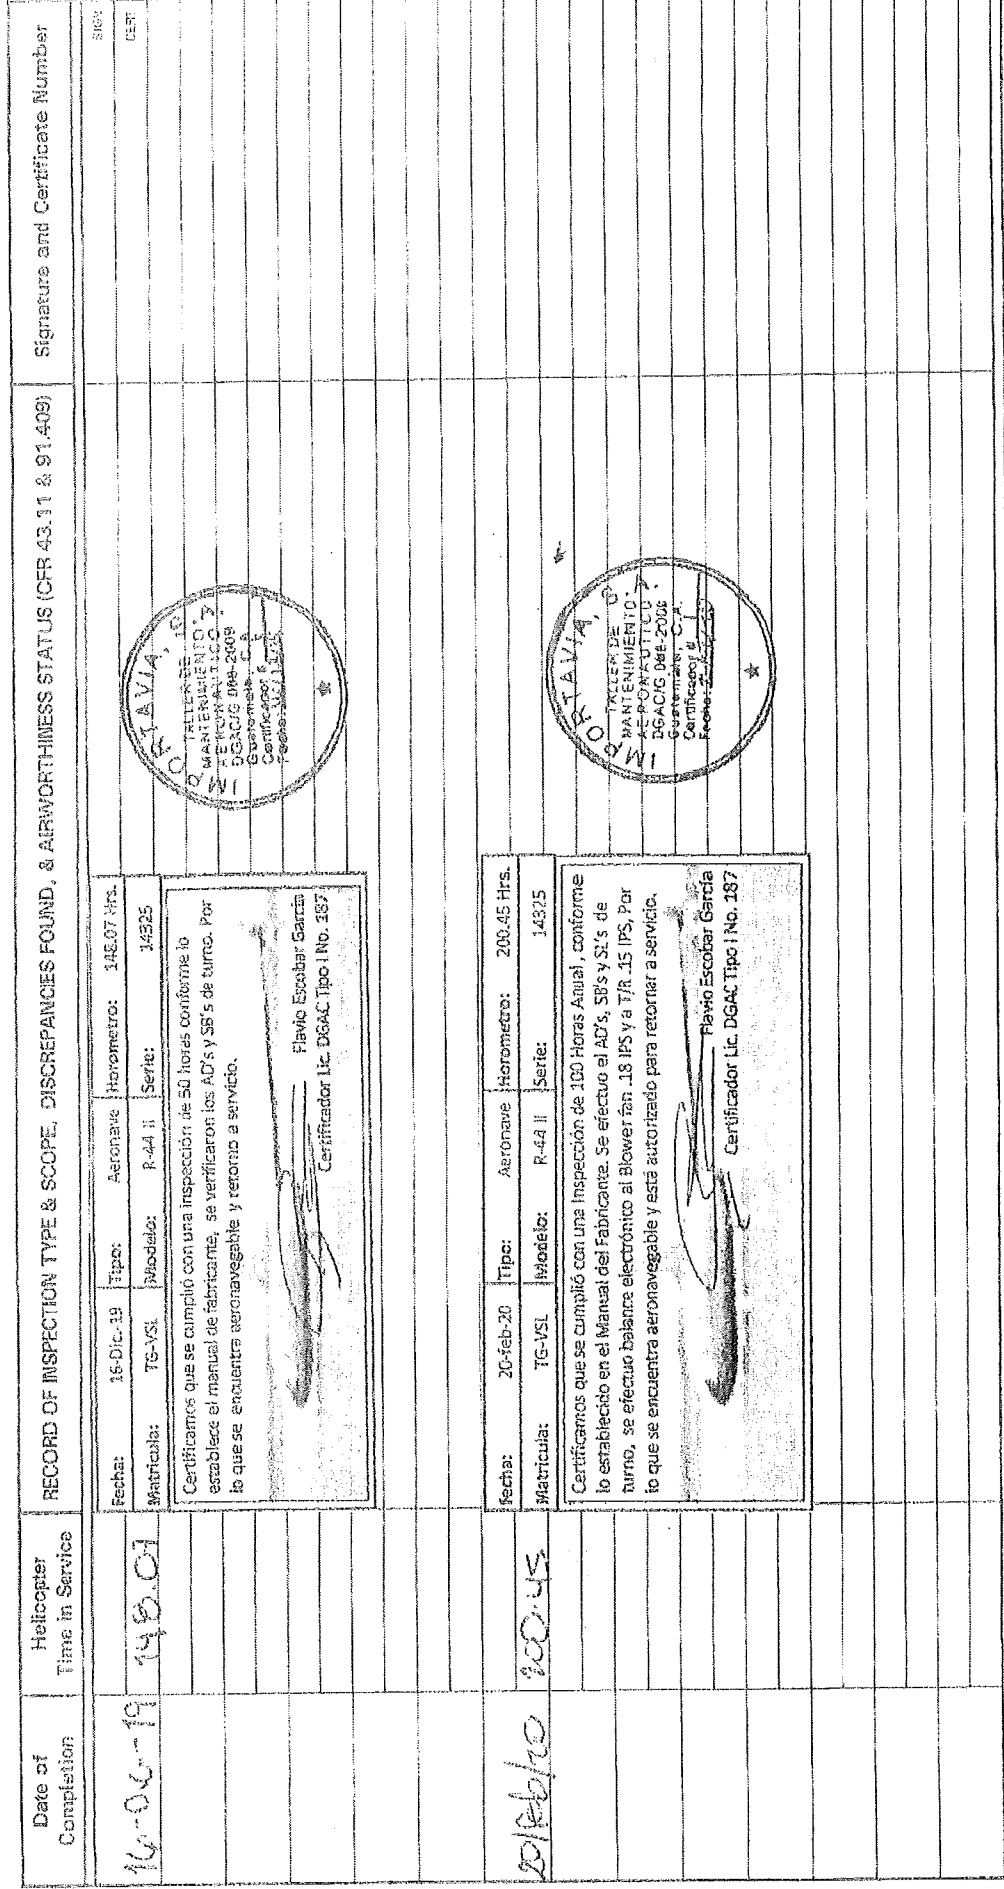 Date of Completion
Helicopter Time in Service
RECORD OF INSPECTION TYPE & SCOPE, DISCREPANCIES FOUND, & AIRWORTHINESS STATUS (CFR 43.11 & 91.409)
Signature and Certificate Number
SIGN
CERT
16-Dic-19
148.07
Fecha: 16-Dic.-19 Tipo: Aeronave Horometro: 148.07 Hrs.
Matricula: TG-VSL Modelo: R-44 II Serie: 14325
Certificamos que se cumplió con una inspección de 50 horas conforme lo
establece el manual de fabricante, se verificaron los AD's y SB's de turno. Por
lo que se encuentra aeronavegable y retorno a servicio.
Flavio Escobar García
Certificador Lic. DGAC Tipo I No. 187
IMPORTAVIA, S
TALLER DE
MANTENIMIENTO
AERONAUTICO
DGAC/G 068-2009
Guatemala, C.A.
Certificador #
Fecha:
20/feb/20
200.45
Fecha: 20-feb-20 Tipo: Aeronave Horometro: 200.45 Hrs.
Matricula: TG-VSL Modelo: R-44 II Serie: 14325
Certificamos que se cumplió con una Inspección de 100 Horas Anual, conforme
lo establecido en el Manual del Fabricante. Se efectuo el AD's, SB's y SL's de
turno, se efectuo balance electrónico al Blower fan .18 IPS y a T/R .15 IPS, Por
lo que se encuentra aeronavegable y está autorizado para retornar a servicio.
Flavio Escobar García
Certificador Lic. DGAC Tipo I No. 187
IMPORTAVIA, S
TALLER DE
MANTENIMIENTO
AERONAUTICO
DGAC/G
Guatemala, C.A.
Certificador #
Fecha: